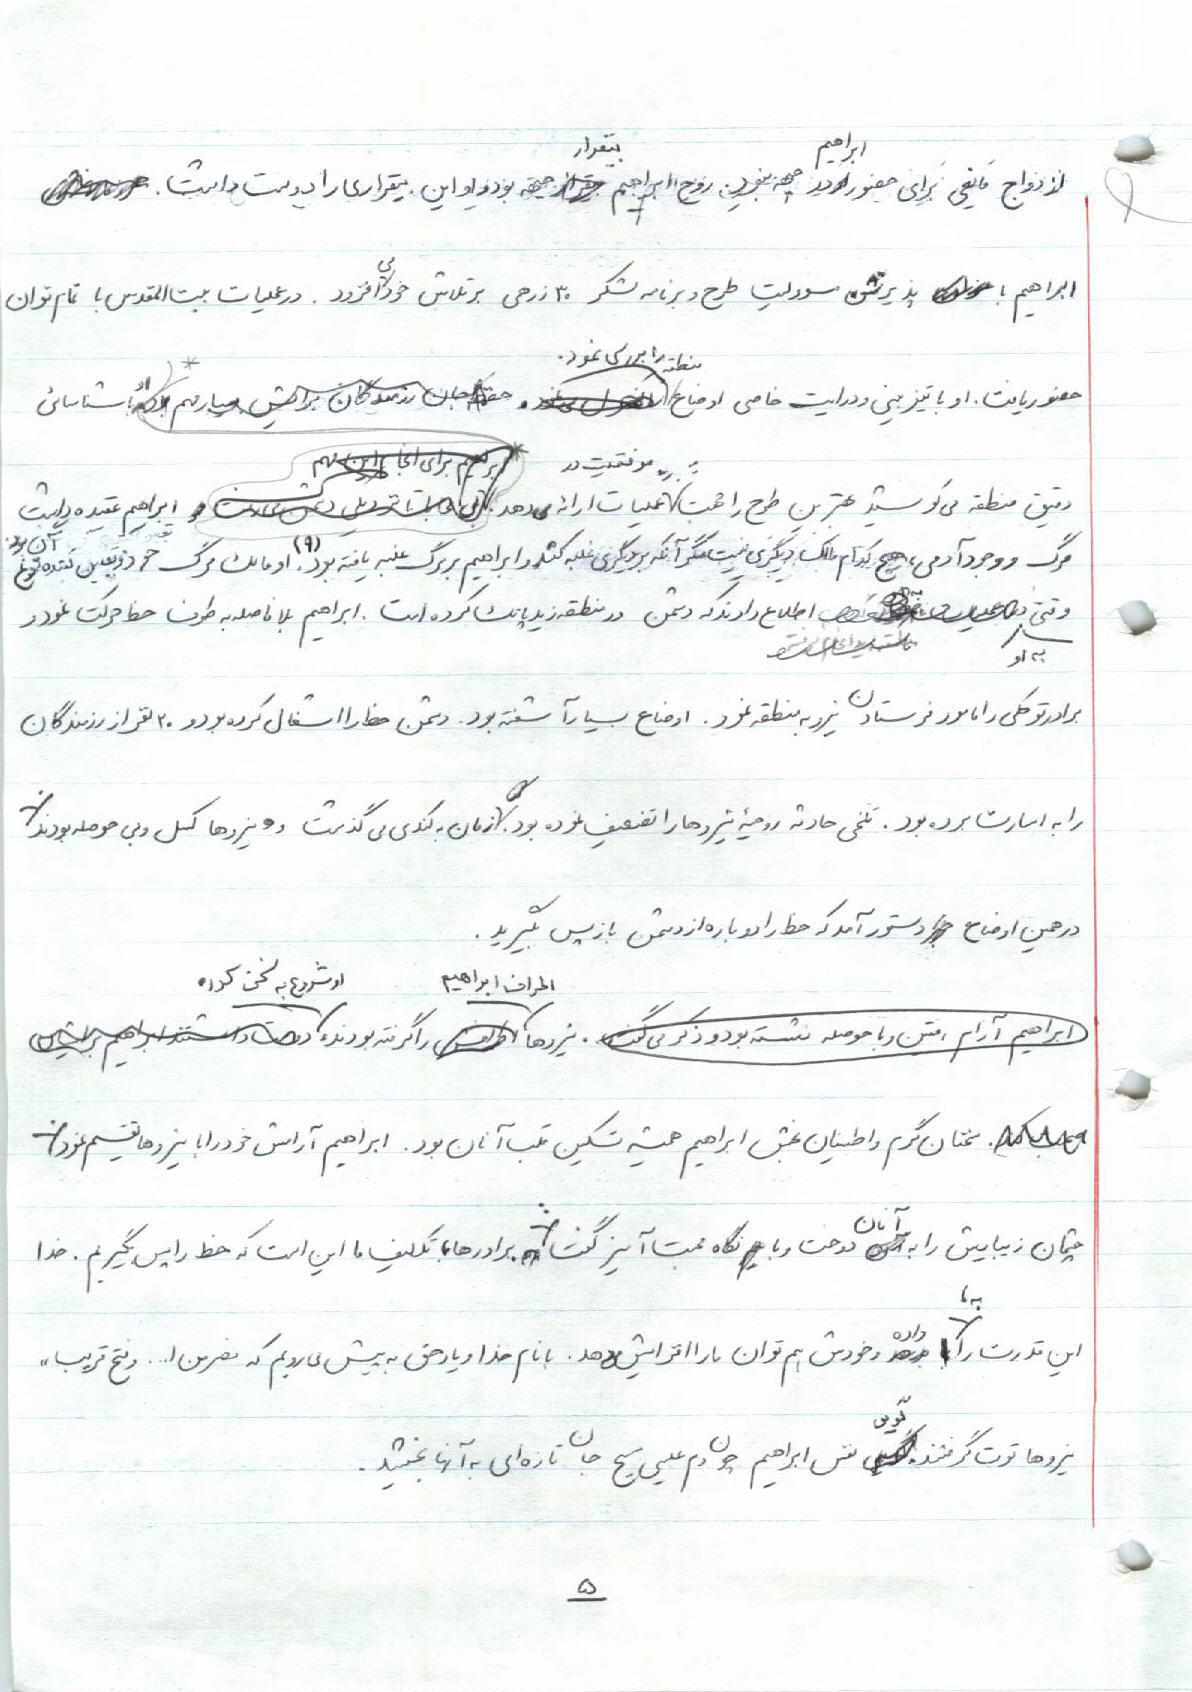 ابراهیم
بیقرار
ازدواج مانعی برای حضور در جبهه نبود. روح ابراهیم جبهه بود و او این بیقراری را دوست داشت.
ابراهیم با پذیرش مسوولیت طرح و برنامه لشکر ۳۰ زرهی بر تلاش خود می افزود. در عملیات بیت المقدس با تمام توان
منطقه را بررسی نمود.
حضور یافت. او با تیزبینی و درایت خاصی اوضاع حفظ جان رزمندگان برایش بسیار مهم بود با شناسائی
موفقیت در
ابراهیم برای انجام این مهم
دقیق منطقه می کوشید بهترین طرح را جهت عملیات ارائه دهد. ابراهیم عقیده داشت
مرگ و وجود آدمی، هیچ کدام مالک دیگری نیست مگر آنکه بر دیگری غلبه کند و ابراهیم بر مرگ غلبه یافته بود. (۹) او مالک مرگ خود و
وقتی به او اطلاع دادند که دشمن در منطقه زید پاتک کرده است. ابراهیم بلافاصله به طرف خط حرکت نمود و
به او
برادر توکلی را مامور فرستادن نیرو به منطقه نمود. اوضاع بسیار آشفته بود. دشمن خط را اشغال کرده بود و ۲۰ نفر از رزمندگان
را به اسارت برده بود. تلخی حادثه روحیۀ نیروها را تضعیف نموده بود. زمان به کندی می گذشت و نیروها کسل و بی حوصله بودند
در همین اوضاع دستور آمد که خط را دوباره از دشمن بازپس بگیرید.
اطراف ابراهیم
او شروع به سخن کرد
ابراهیم آرام، متین و با حوصله نشسته بود و ذکر می گفت. نیروها اطرافش را گرفته بودند
سخنان گرم و اطمینان بخش ابراهیم همیشه تسکین قلب آنان بود. ابراهیم آرامش خود را با نیروها تقسیم نمود
آنان
چشمان زیبایش را به دوخت و با نگاه محبت آمیز گفت: برادرها تکلیف ما این است که خط را پس بگیریم. خدا
به ما
این قدرت را داده و خودش هم توان ما را افزایش دهد. با نام خدا و یاد حق به پیش می رویم که نصر من ا... و فتح قریب"
گویی
نیروها قوت گرفتند. نفس ابراهیم چون دم عیسی مسیح جان تازه ای به آنها بخشید.
۵